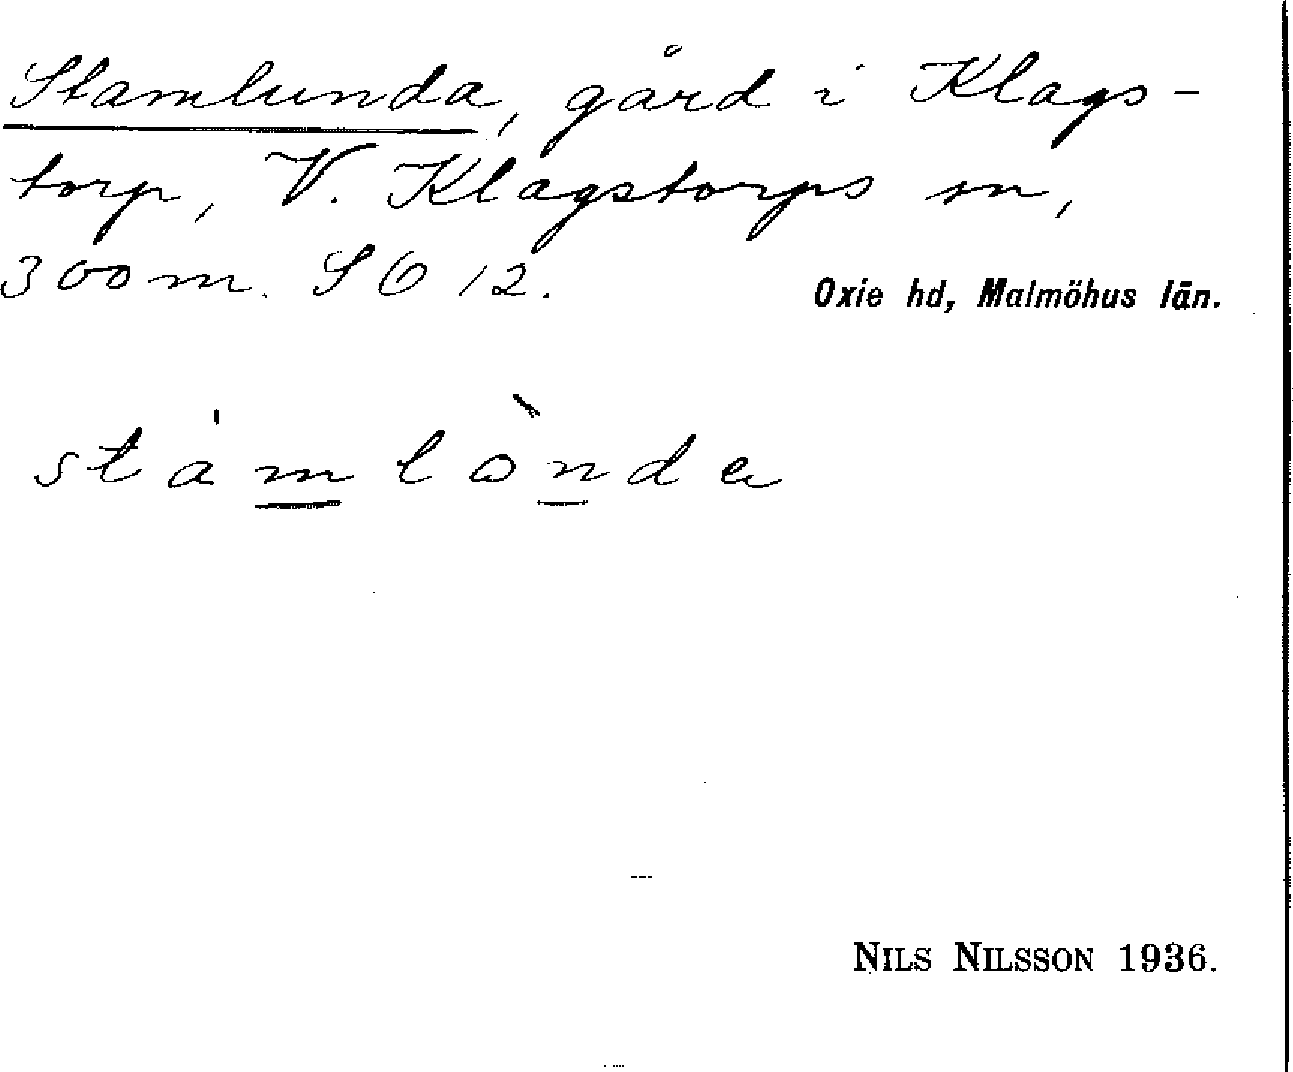 Stamlunda, gård i Klags-
torp, V. Klagstorps sn,
300 m. S Ö 12.
Oxie hd, Malmöhus län.
stàmlònda
NILS NILSSON 1936.